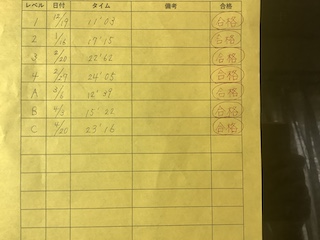 レベル 日付 タイム 備考 合格
1 12/19 11'03 合格
2 1/16 17'15 合格
3 2/20 22'62 合格
4 2/27 24'05 合格
A 3/6 12'39 合格
B 4/3 15'22 合格
C 4/20 23'16 合格